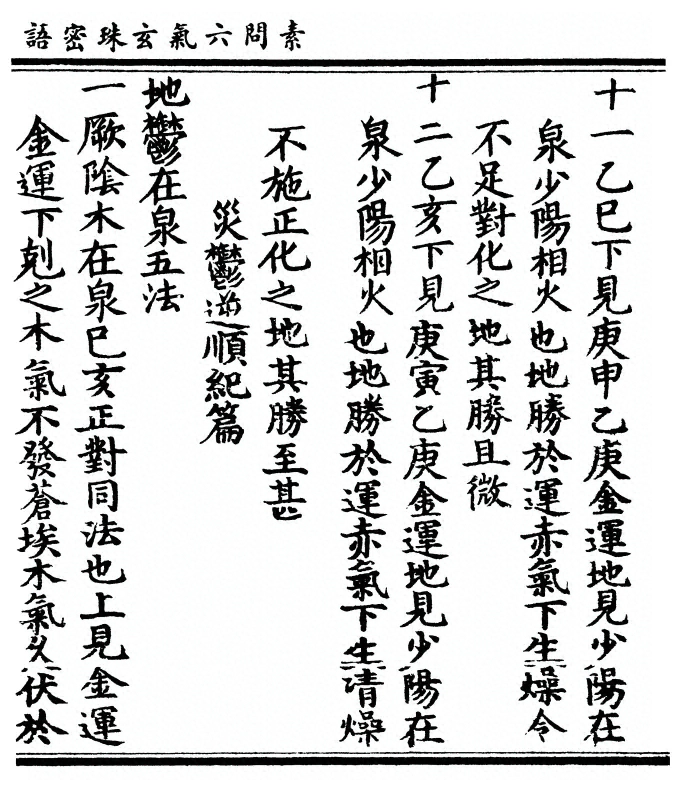 素問六氣玄珠密語
十一乙巳下見庚申乙庚金運地見少陽在
泉少陽相火也地勝於運赤氣下生燥令
不足對化之地其勝且微
十二乙亥下見庚寅乙庚金運地見少陽在
泉少陽相火也地勝於運赤氣下生清燥
不施正化之地其勝至甚
災鬱逆順紀篇
地鬱在泉五法
一厥陰木在泉巳亥正對同法也上見金運
金運下剋之木氣不發蒼埃木氣久伏於